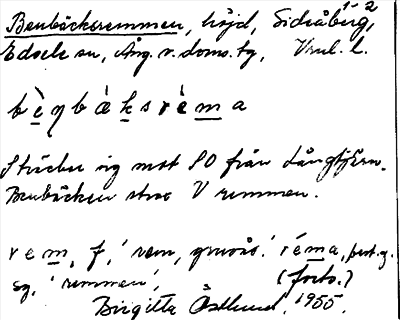 Benbäcksremmen, höjd, Sidsåberg, 1-2
Edsele sn, Ång. v. doms. tg, l.
bèŋbàksrèma
Sträcker sig mot SO från Långtjärn.
Benbäcken stax V remmen.
rem, f, 'rem, grusås.' réma, best. g.
sg. 'remmen', (forts.)
Birgitta Östlund, 1955.